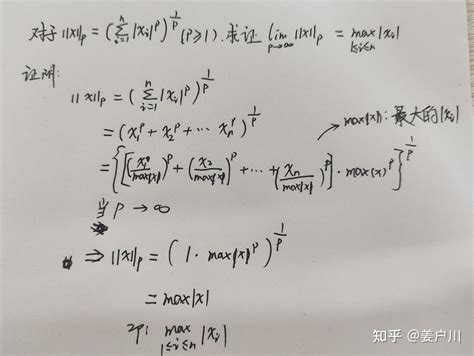 对于||x||p = (∑_{i=1}^{n} |x_i|^p)^{1/p} (p≥1). 求证 lim_{p→∞} ||x||p = max_{1≤i≤n} |x_i|
证明:
||x||p = (∑_{i=1}^{n} |x_i|^p)^{1/p}
= (x_1^p + x_2^p + ⋯ x_n^p)^{1/p}
max|x|: 最大的|x_i|
= {[(x_1/max|x|)^p + (x_2/max|x|)^p + ⋯ + (x_n/max|x|)^p] · max(x)^p}^{1/p}
当 P → ∞
⇒ ||x||p = (1 · max|x|^p)^{1/p}
= max|x|
即: max_{1≤i≤n} |x_i|
知乎 @姜户川